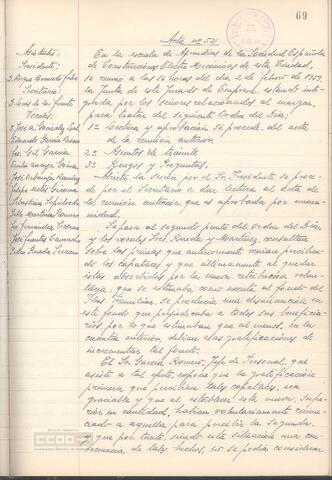 69
Acta nº 52
Asistentes:
Presidente:
D. Roque
Secretario:
D. Luis de la Fuente
Vocales:
D. José A. González
Eduardo García
José Gil García
Emilio Amaya Gómez
José Urbanejo Ramírez
Felipe
Sebastián Sepúlveda
Julio Martínez
Fernández
José Fuentes Camacho
Pedro Pineda Serrano
En la escuela de Aprendices de la Sociedad Española
de Construcciones Electro Mecánicas de esta Ciudad,
se reunió a las 16 horas del día 2 de febrero de 1959
la Junta de este Jurado de Empresa, estando inte-
grada por los Señores relacionados al margen,
para tratar del siguiente Orden del Día:
1º Lectura y aprobación si procede, del acta
de la reunión anterior.
2º Asuntos de trámite
3º Ruegos y Preguntas.
Abierta la sesión por el Sr. Presidente se proce-
de por el Secretario a dar lectura al acta de
la reunión anterior, que es aprobada por una-
nimidad.
Se pasa al segundo punto del orden del Día
y los vocales Sres. Rueda y Martínez, consultan
sobre las primas que anteriormente venían perci-
biendo los capataces y que últimamente al quedar
éstas absorbidas por la nueva retribución volun-
taria, que se estimaba como exenta al fondo del
Plus Familiar, se producía una disminución en
este fondo que perjudicaba a todos sus beneficia-
rios, por lo que estimaban que al menos, en la
cuantía anterior, debían esas gratificaciones de
incrementar tal fondo.
El Sr. García Romero, Jefe de Personal, que
asiste a tal objeto, expone que la gratificación
primera que percibían tales capataces, era
graciable y que al establecer esta nueva, supe-
rior en cantidad, habían voluntariamente renun-
ciado a aquella para percibir la segunda
y que por tanto, siendo esta situación una con-
secuencia de tales hechos, no se podía considerar
CCOO